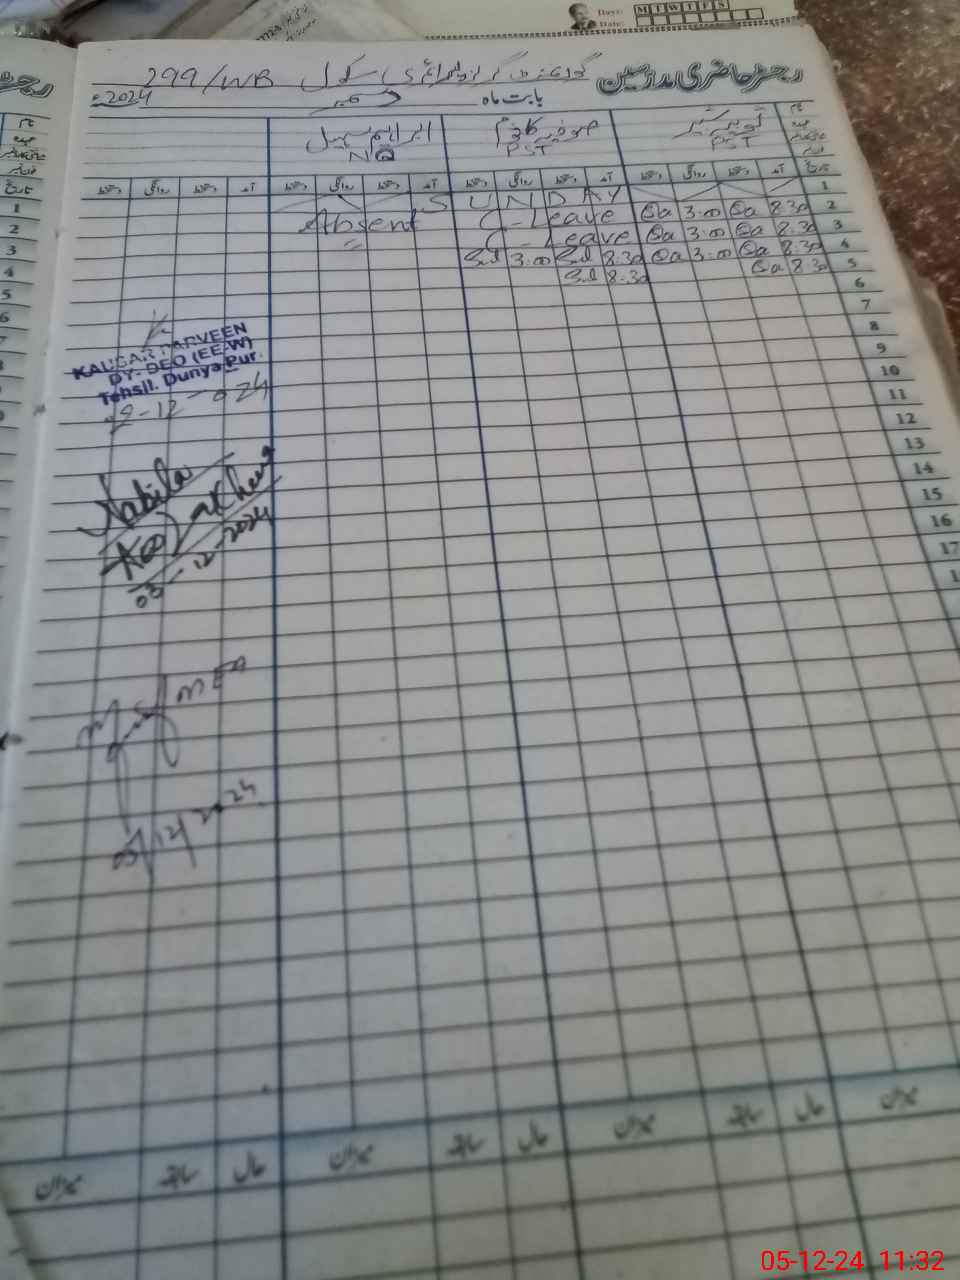 Day:
M T W T F S
Date:
رجسٹر حاضری مدرسین گورنمنٹ گرلز پرائمری سکول 299/WB
بابت ماہ دسمبر 2024ء
نام
عہدہ
تاریخ
PST
صوفیہ کلثوم
PST
NQ
آمد دستخط روانگی دستخط آمد دستخط روانگی دستخط آمد دستخط روانگی دستخط آمد دستخط روانگی دستخط
1 SUNDAY
2 8:30 Qa 3:00 Qa C-Leave Absent
3 8:30 Qa 3:00 Qa C-Leave =
4 8:30 Qa 3:00 Qa 8:30 Sul 3:00 Sul
5 8:30 Qa 8:30 Sul
6
7
8
9
10
11
12
13
14
15
16
17
KAUSAR PARVEEN
DY. DEO (EE-W)
Tehsil. Dunya Pur.
Nabila
03-12-2024
05/12/2024
میزان حال سابقہ میزان حال سابقہ میزان حال سابقہ میزان
05-12-24 11:32